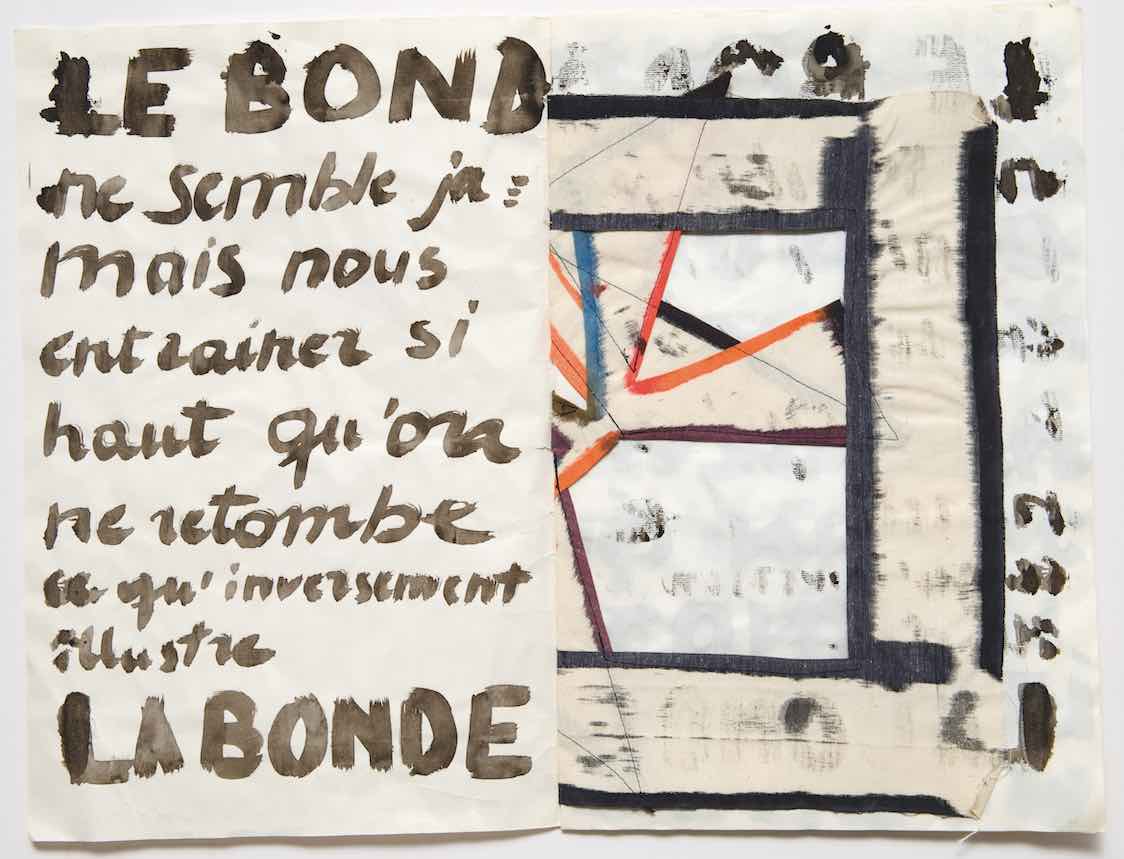 LE BOND
ne semble ja=
mais nous
entrainer si
haut qu'on
ne retombe
ce qu'inversement
illustre
LA BONDE